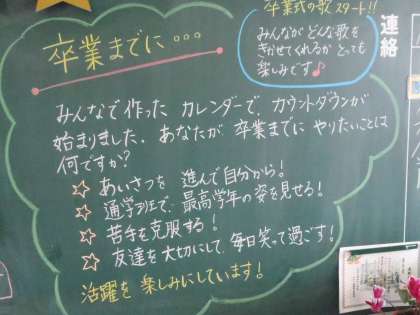 卒業式の歌スタート!!
みんなが どんな歌を
きかせてくれるか とっても
楽しみです♪
連絡
卒業までに…
みんなで作った カレンダーで、カウントダウンが
始まりました。あなたが 卒業までに やりたいことは
何ですか?
☆ あいさつを 進んで自分から!
☆ 通学班で、最高学年の姿を見せる!
☆ 苦手を克服する!
☆ 友達を大切にして、毎日笑って過ごす!
活躍を 楽しみにしています!